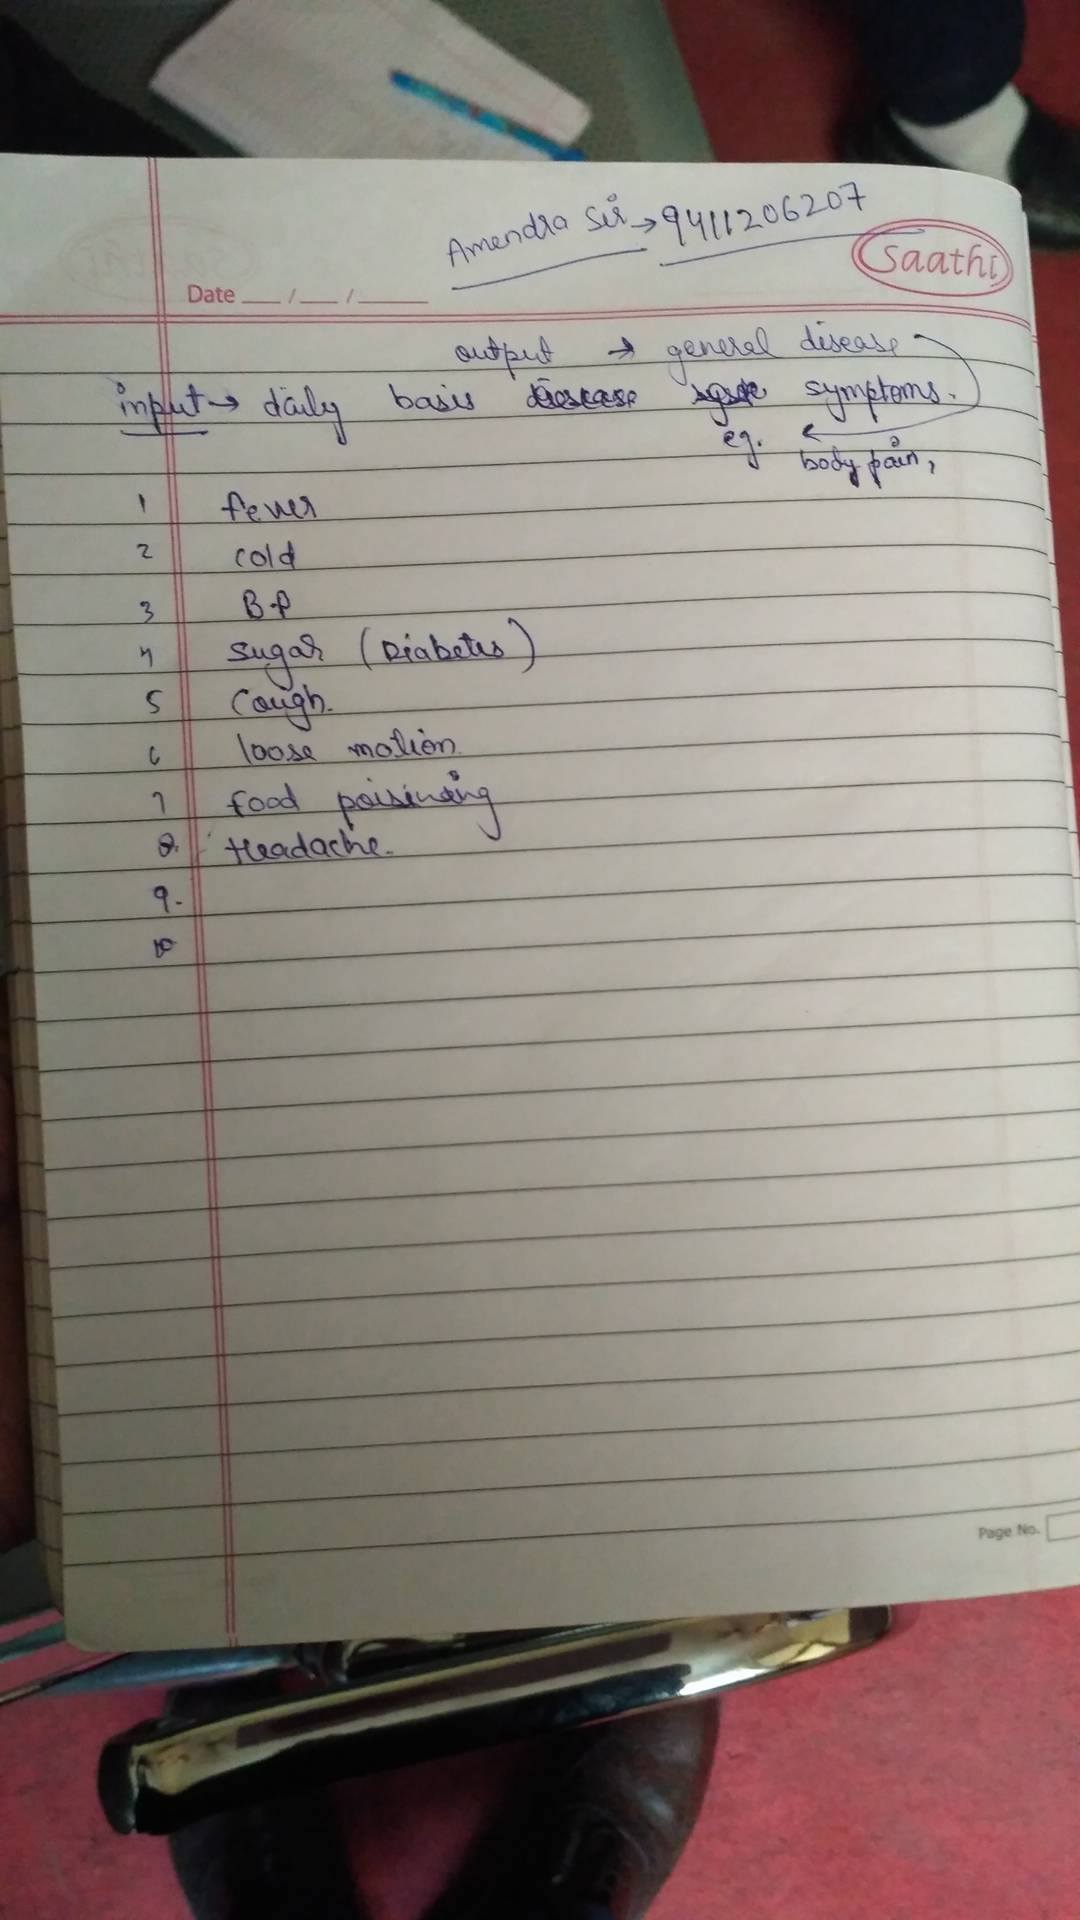 Amendra Sir → 9411206207
saathi
Date ___/___/_____
output → general disease
input → daily basis disease symptoms.
eg. body pain,
1 fever
2 cold
3 B.P
4 sugar (Diabetes)
5 Cough.
6 loose motion.
7 food poisining
8. Headache.
9.
10
Page No.